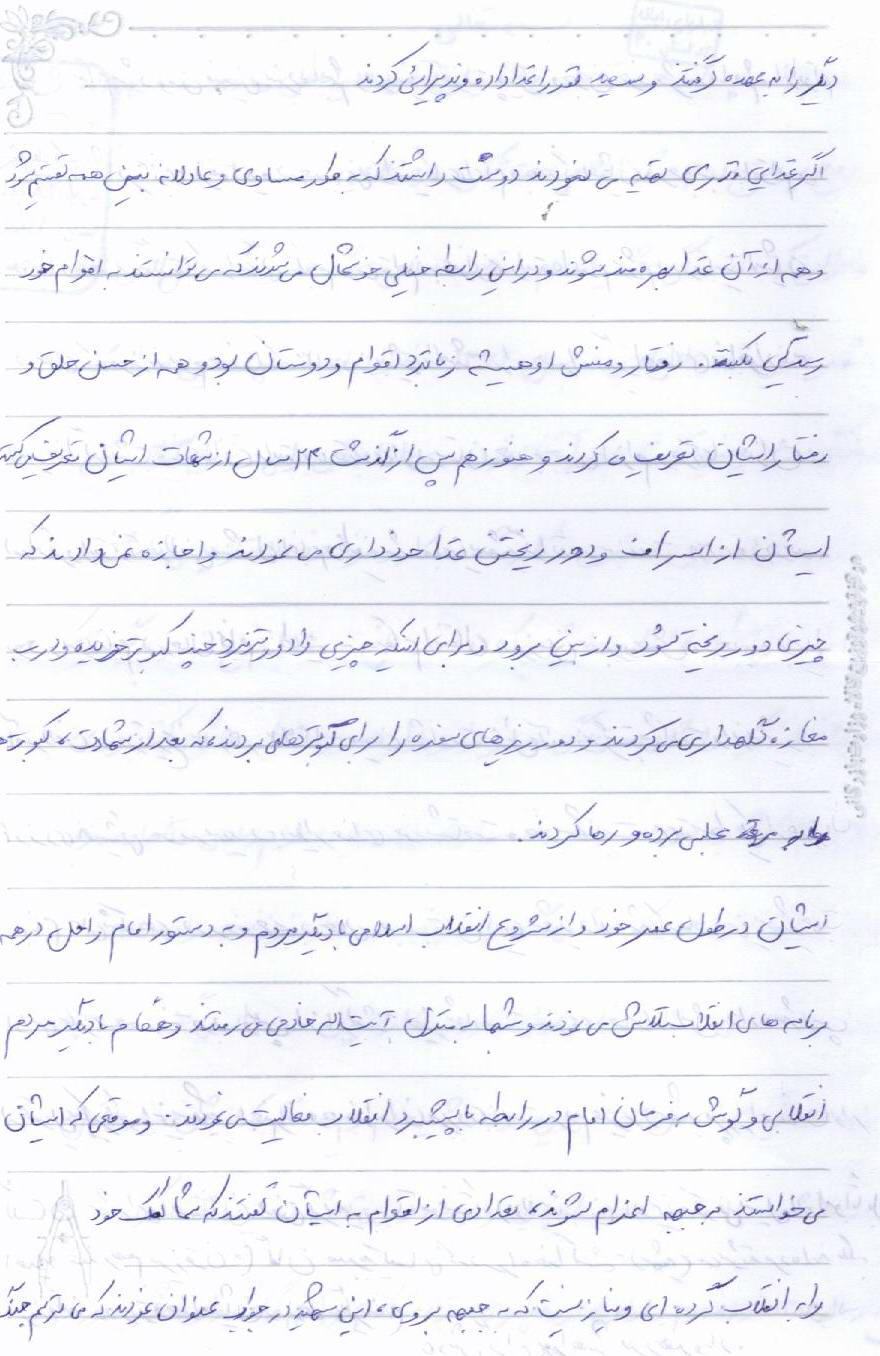 دیگر را به عهده گرفتند و سعید نفر را غذا داده و پذیرائی کردند
اگر غذایی و چیزی تهیه می نمودند دوست داشتند که به طور مساوی و عادلانه بین همه تقسیم شود
و همه از آن غذا بهره مند شوند و در این رابطه خیلی خوشحال می شدند که می توانستند به اقوام خود
رسیدگی بکنند. رفتار و منش او همیشه زبانزد اقوام و دوستان بود و همه از حسن خلق و
رفتار ایشان تعریف می کردند و هنوز هم پس از گذشت ۲۴ سال از شهادت ایشان تعریف می کنند
ایشان از اسراف و دور ریختن غذا خودداری می نمودند و اجازه نمی دادند که
چیزی دور ریخته شود و از بین برود و برای اینکه چیزی را دور نریزد چند کبوتر خریده و درب
مغازه نگهداری می کردند و دور ریزهای سفره را برای کبوترها می بردند، که بعد از شهادت، کبوترها
برده و رها کردند.
ایشان در طول عمر خود و از شروع انقلاب اسلامی با دیگر مردم و به دستور امام راحل در همه
برنامه های انقلاب تلاش می نمودند و شبها به منزل آیت اله خادمی می رفتند و همگام با دیگر مردم
انقلابی و گوش به فرمان امام در رابطه با پیشبرد انقلاب فعالیت می نمودند. و موقعی که ایشان
می خواستند به جبهه اعزام شوند، تعدادی از اقوام به ایشان گفتند که شما کمک خود
را به انقلاب کرده ای و نیاز نیست که به جبهه بروی، این شهید در جواب عنوان نمودند که می ترسم جنگ